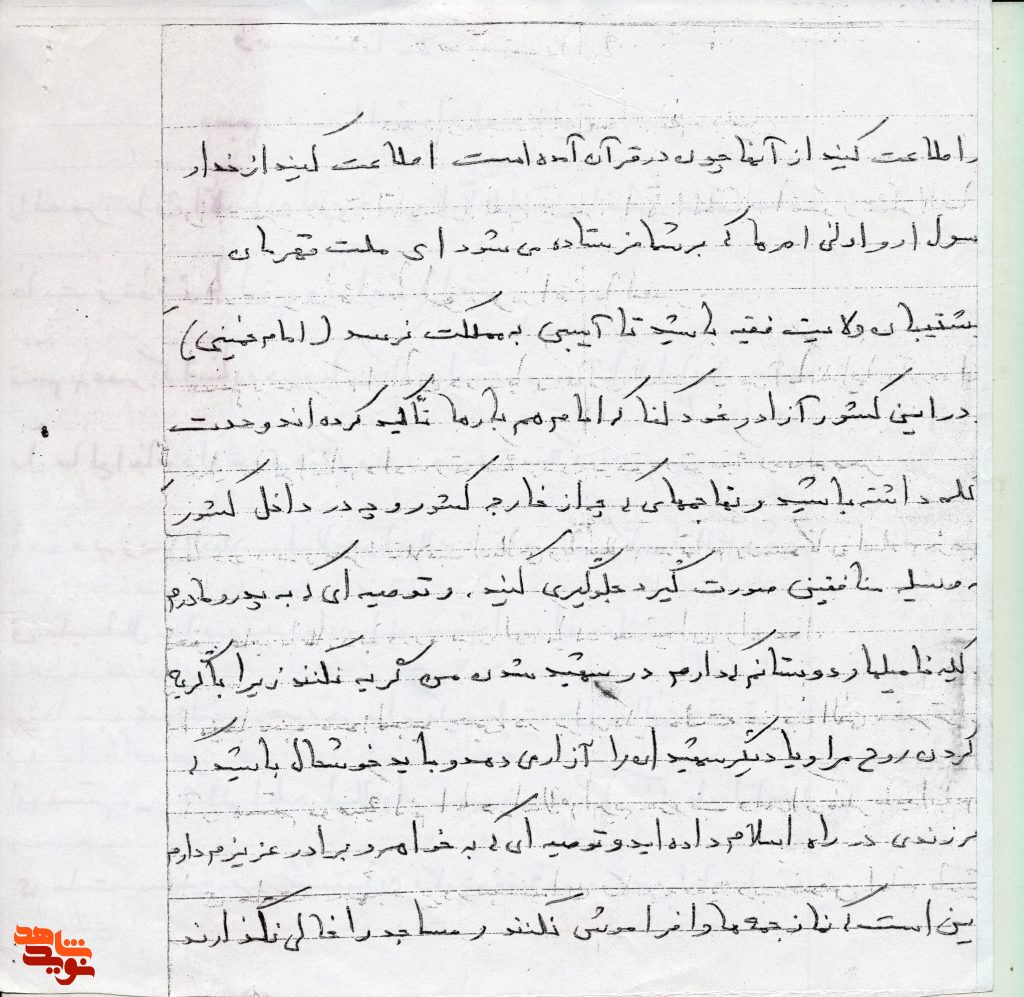 را طاعت کنید از آنها چون در قرآن آمده است اطاعت کنید از خدا و ر
سول او و اولی امرها که بر شما فرستاده می شود ای ملت قهرمان
پشتیبان ولایت فقیه باشید تا آسیبی به مملکت نرسد (امام خمینی)
در این کشور آزاد که امام هم بارها تأکید کرده اند وحدت
کلمه داشته باشید و تهاجمهای که چه از خارجه کشور و چه در داخل کشور
به وسیله منافقین صورت گیرد جلوگیری کنید. و توصیه ای که به پدر و مادرم
کلیه فامیلها و دوستانم که دارم در شهید شدن من گریه نکنند زیرا با گریه
کردن روح مرا و یا دیگر شهیدان را آزاری دهد و باید خوشحال باشید که
فرزندی در راه اسلام داده اید و توصیه ای که به خواهر و برادر عزیزم دارم
این است که نماز جمعه ها را فراموش نکنند و مساجد را خالی نگذارند
نوید شاهد